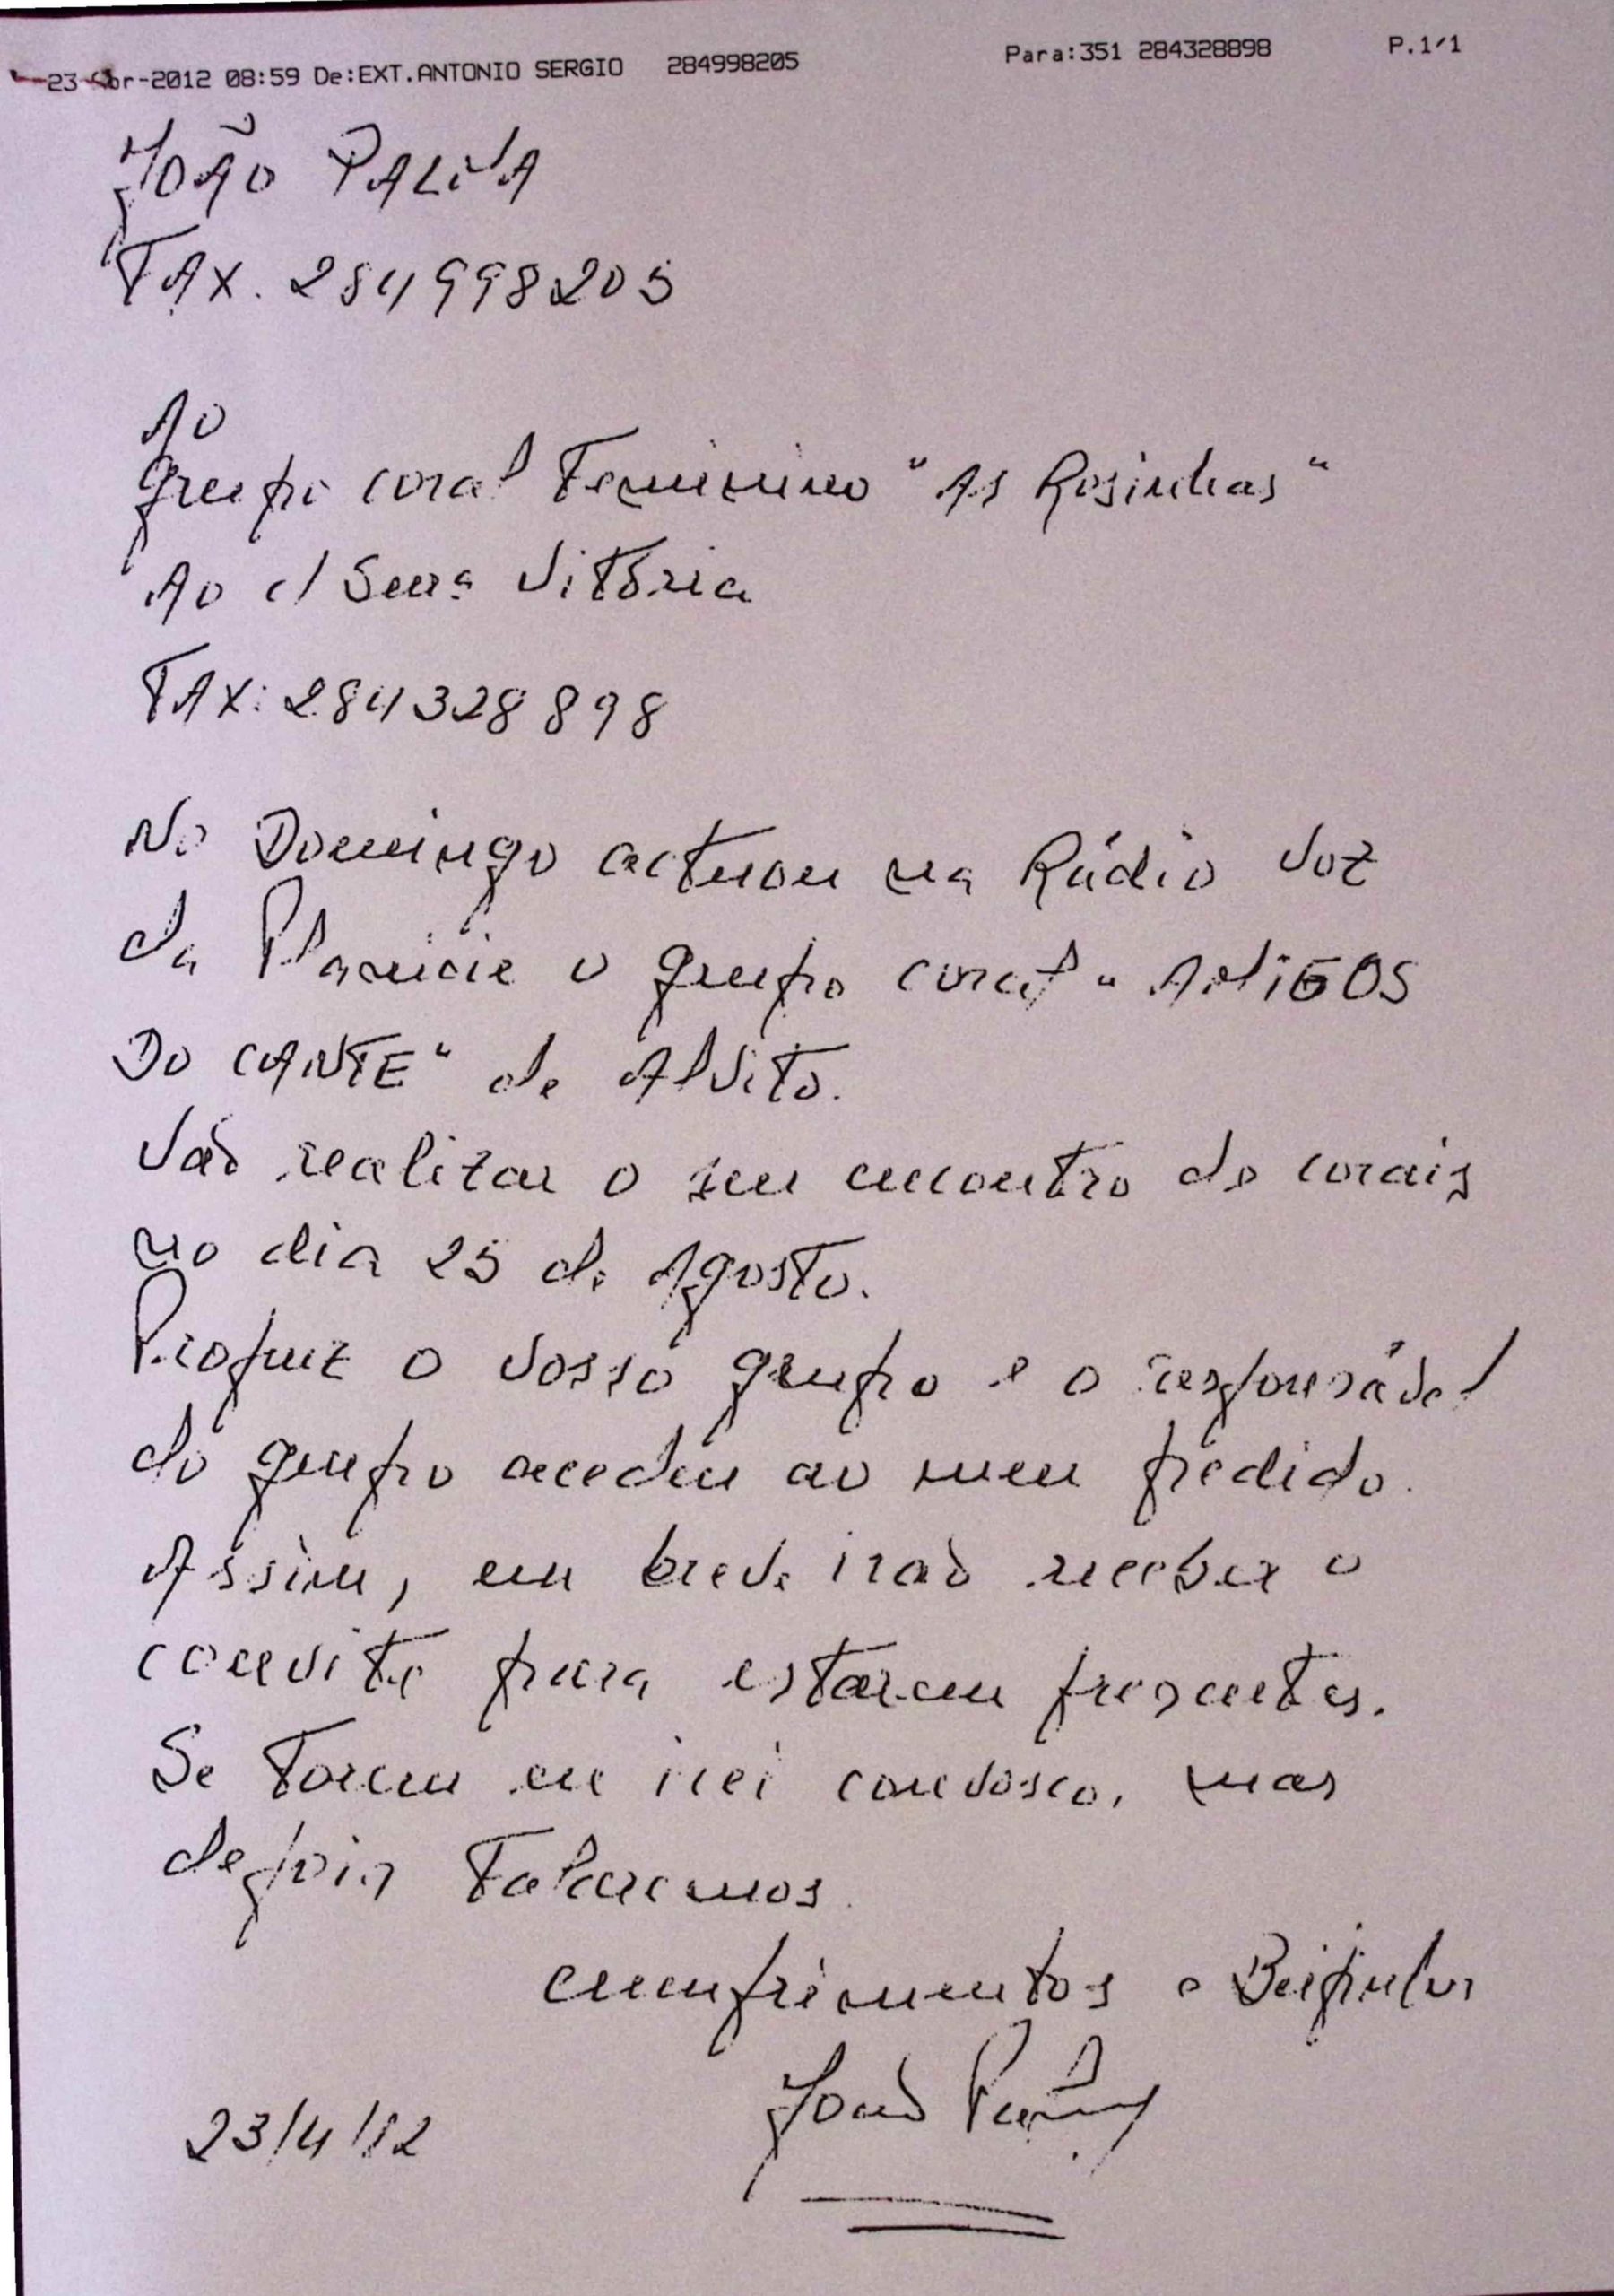 23-Abr-2012 08:59 De:EXT.ANTONIO SERGIO 284998205 Para:351 284328898 P.1/1
JOÃO
FAX. 284998205
AO
grupo coral Feminino "As Rosinhas"
Ao c/ Vitória
FAX: 284328898
No Domingo actuou na Rádio Voz
da Planície o grupo coral "AMIGOS
DO CANTE" de Alvito.
Vão realizar o seu encontro de corais
no dia 25 de Agosto.
Propuz o vosso grupo e o responsável
do grupo acedeu ao meu pedido.
Assim, em breve irão receber o
convite para estarem presentes.
Se forem eu irei convosco, mas
depois falaremos.
cumprimentos e Beijinhos
João
23/4/12